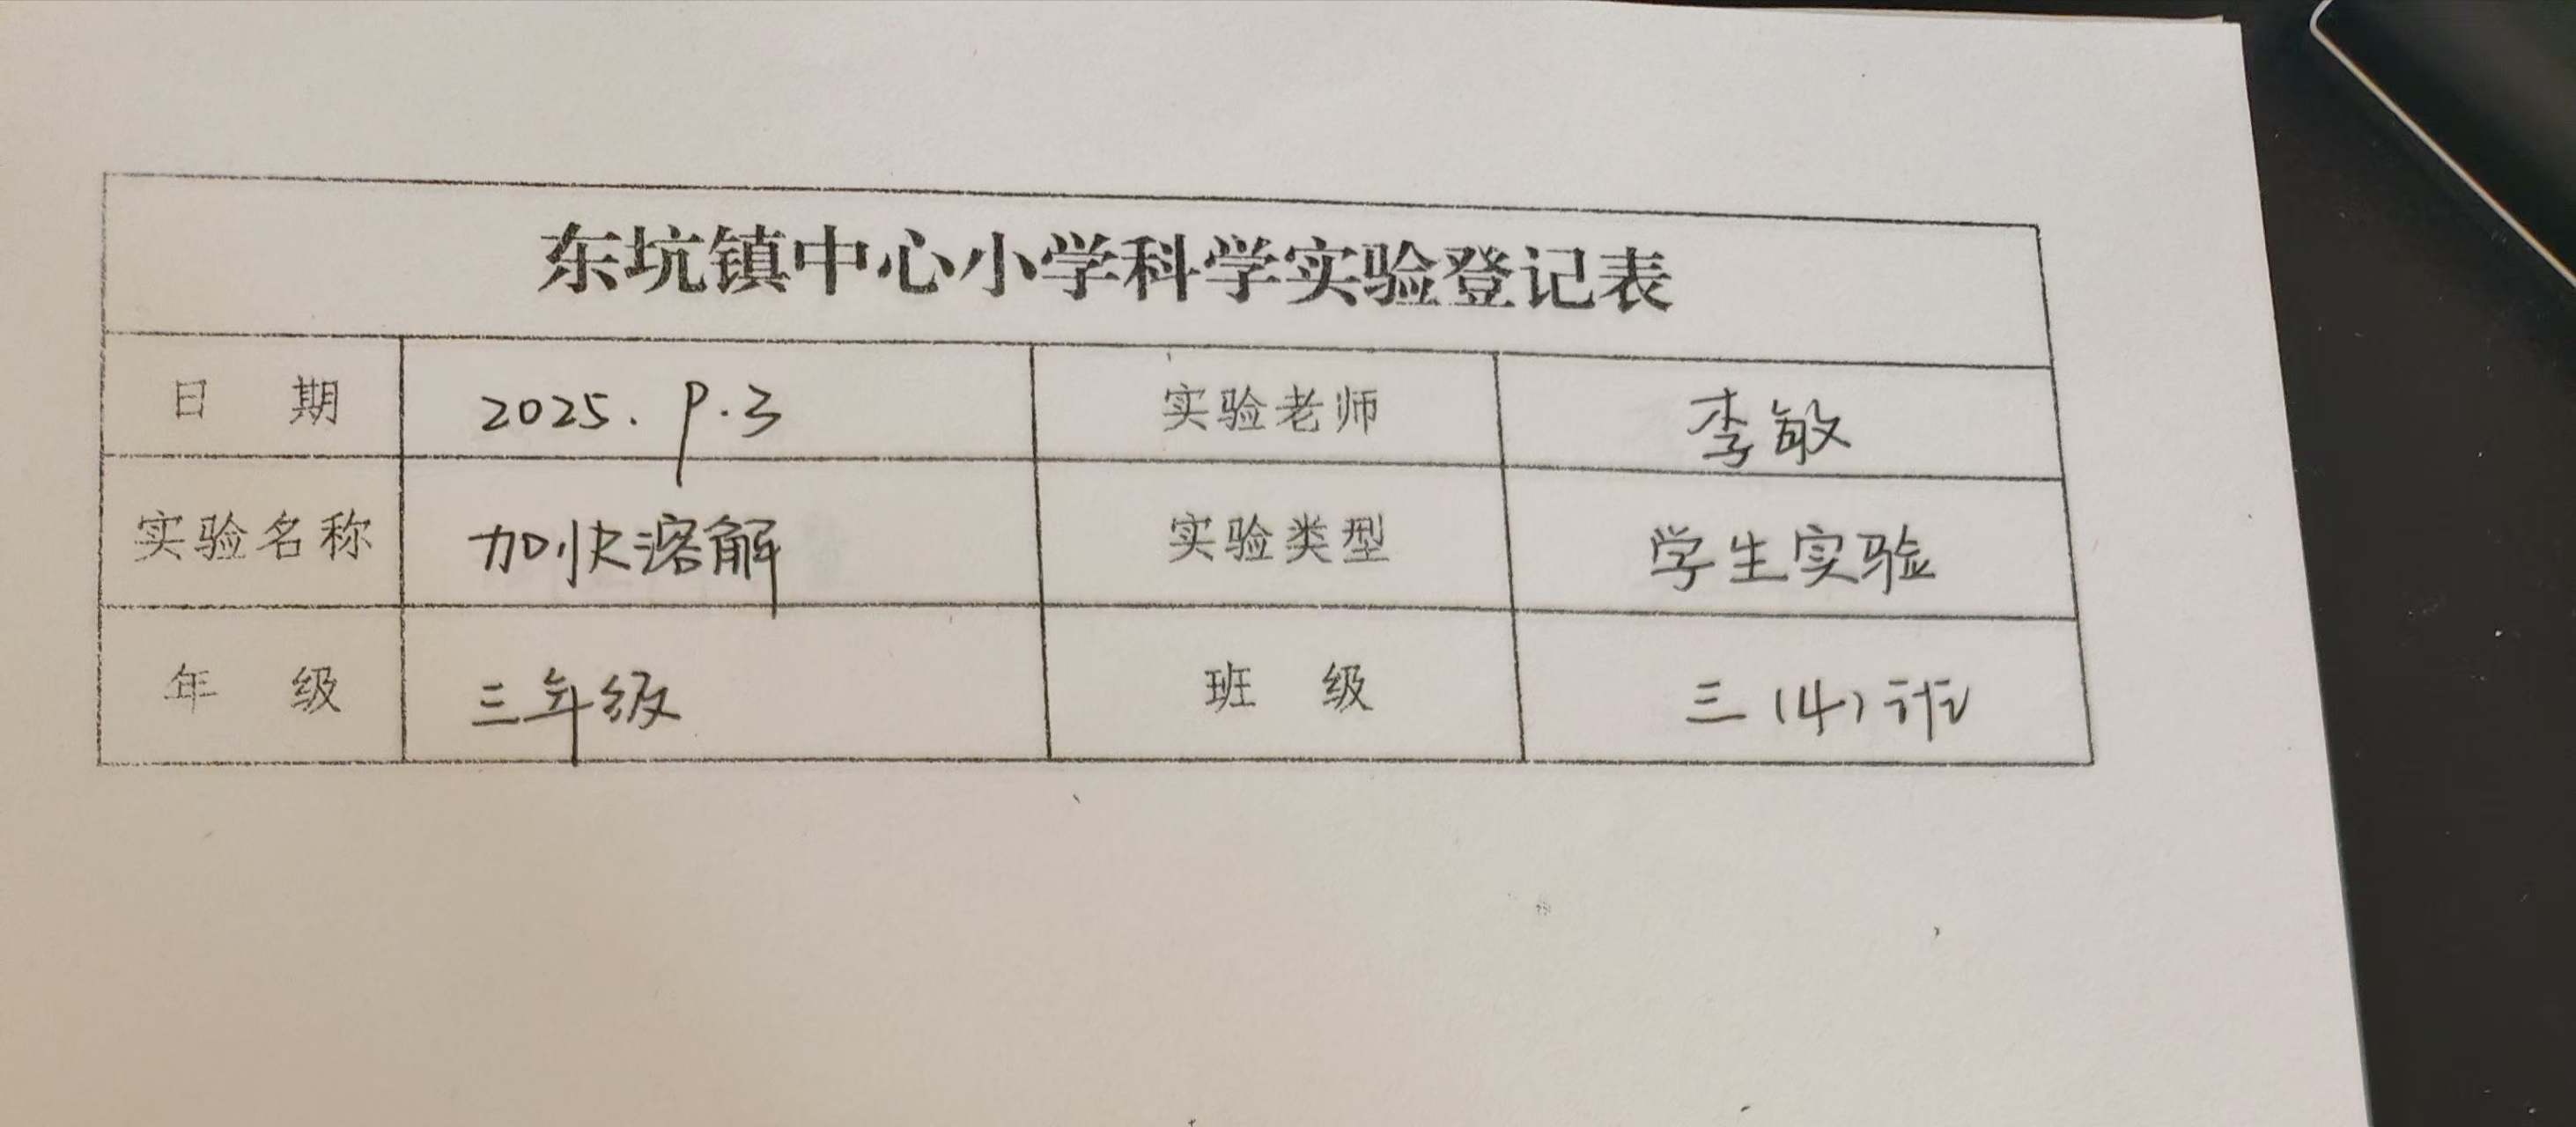 东坑镇中心小学科学实验登记表
日 期 2025.9.3 实验老师 李敏
实验名称 加快溶解 实验类型 学生实验
年 级 三年级 班 级 三(4)班